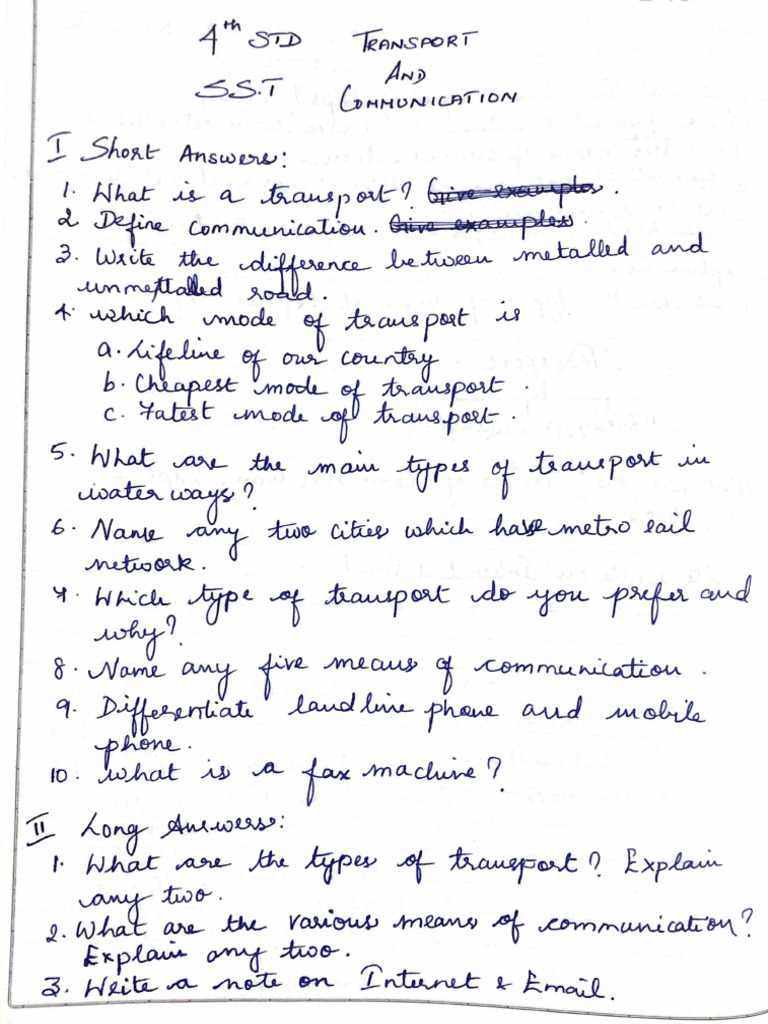 4th STD TRANSPORT
AND
S.S.T COMMUNICATION
I Short Answers:
1. What is a transport? Give examples.
2. Define communication. Give examples.
3. Write the difference between metalled and
unmettalled road.
4. which mode of transport is
a. Lifeline of our country
b. Cheapest mode of transport.
c. Fatest mode of transport.
5. What are the main types of transport in
water ways?
6. Name any two cities which have metro rail
network.
7. Which type of transport do you prefer and
why?
8. Name any five means of communication.
9. Differentiate landline phone and mobile
phone.
10. What is a fax machine?
II Long Answers:
1. What are the types of transport? Explain
any two.
2. What are the various means of communication?
Explain any two.
3. Write a note on Internet & Email.